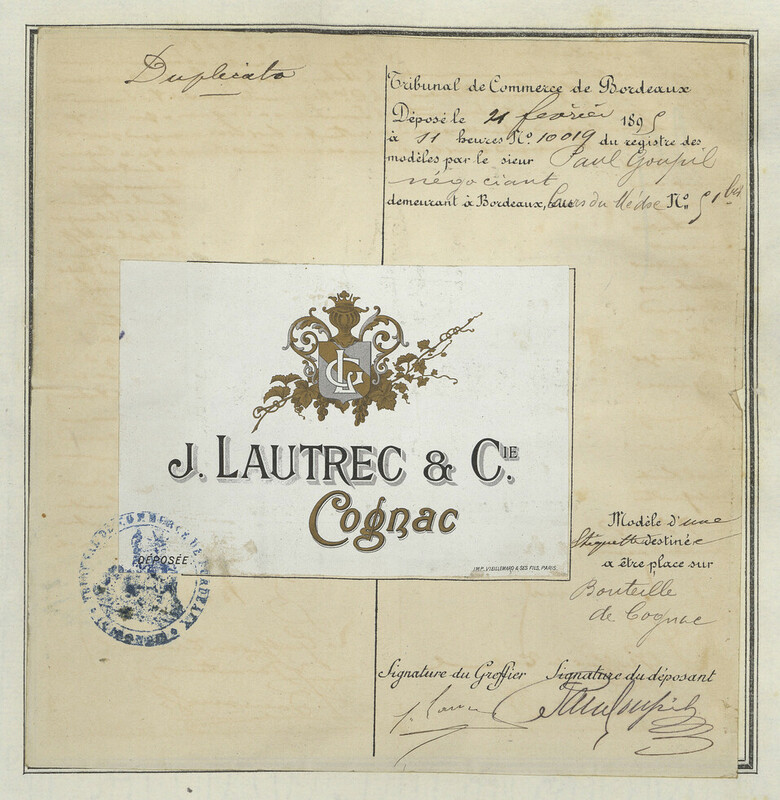 Duplicata
Tribunal de Commerce de Bordeaux
Déposé le 21 février 1895
à 11 heures No. 10019 du registre des
modèles par le sieur Paul Goupil
négociant
demeurant à Bordeaux, cours du Médoc No. 51 bis
LG
J. LAUTREC & CIE.
Cognac
DÉPOSÉE
IMP. VIEILLEMARD & SES FILS, PARIS.
TRIBUNAL DE COMMERCE DE BORDEAUX
Modèle d'une
étiquette destinée
a être place sur
Bouteille
de Cognac
Signature du Greffier Signature du déposant
Paul Goupil